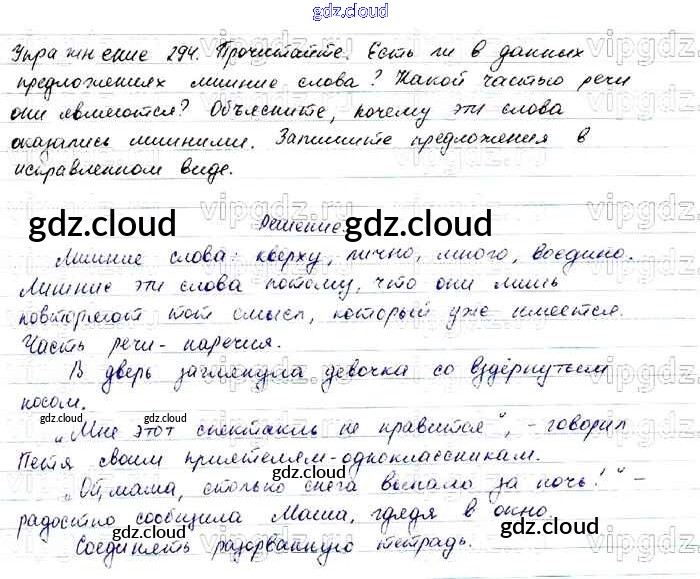 gdz.cloud
Упражнение 294. Прочитайте. Есть ли в данных
предложениях лишние слова? Какой частью речи
они являются? Объясните, почему эти слова
оказались лишними. Запишите предложения в
исправленном виде.
vipgdz.ru
gdz.cloud Решение. gdz.cloud
Лишние слова: кверху, лично, много, воедино.
Лишние эти слова потому, что они лишь
повторяют тот смысл, который уже имеется.
Часть речи - наречия.
В дверь заглянула девочка со вздёрнутым
носом.
gdz.cloud gdz.cloud
„Мне этот спектакль не нравится", - говорил
Петя своим приятелям-одноклассникам.
gdz.cloud
„Ой, мама, столько снега выпало за ночь!" -
радостно сообщила Маша, глядя в окно.
gdz.cloud
Соединять разорванную тетрадь.
gdz.cloud